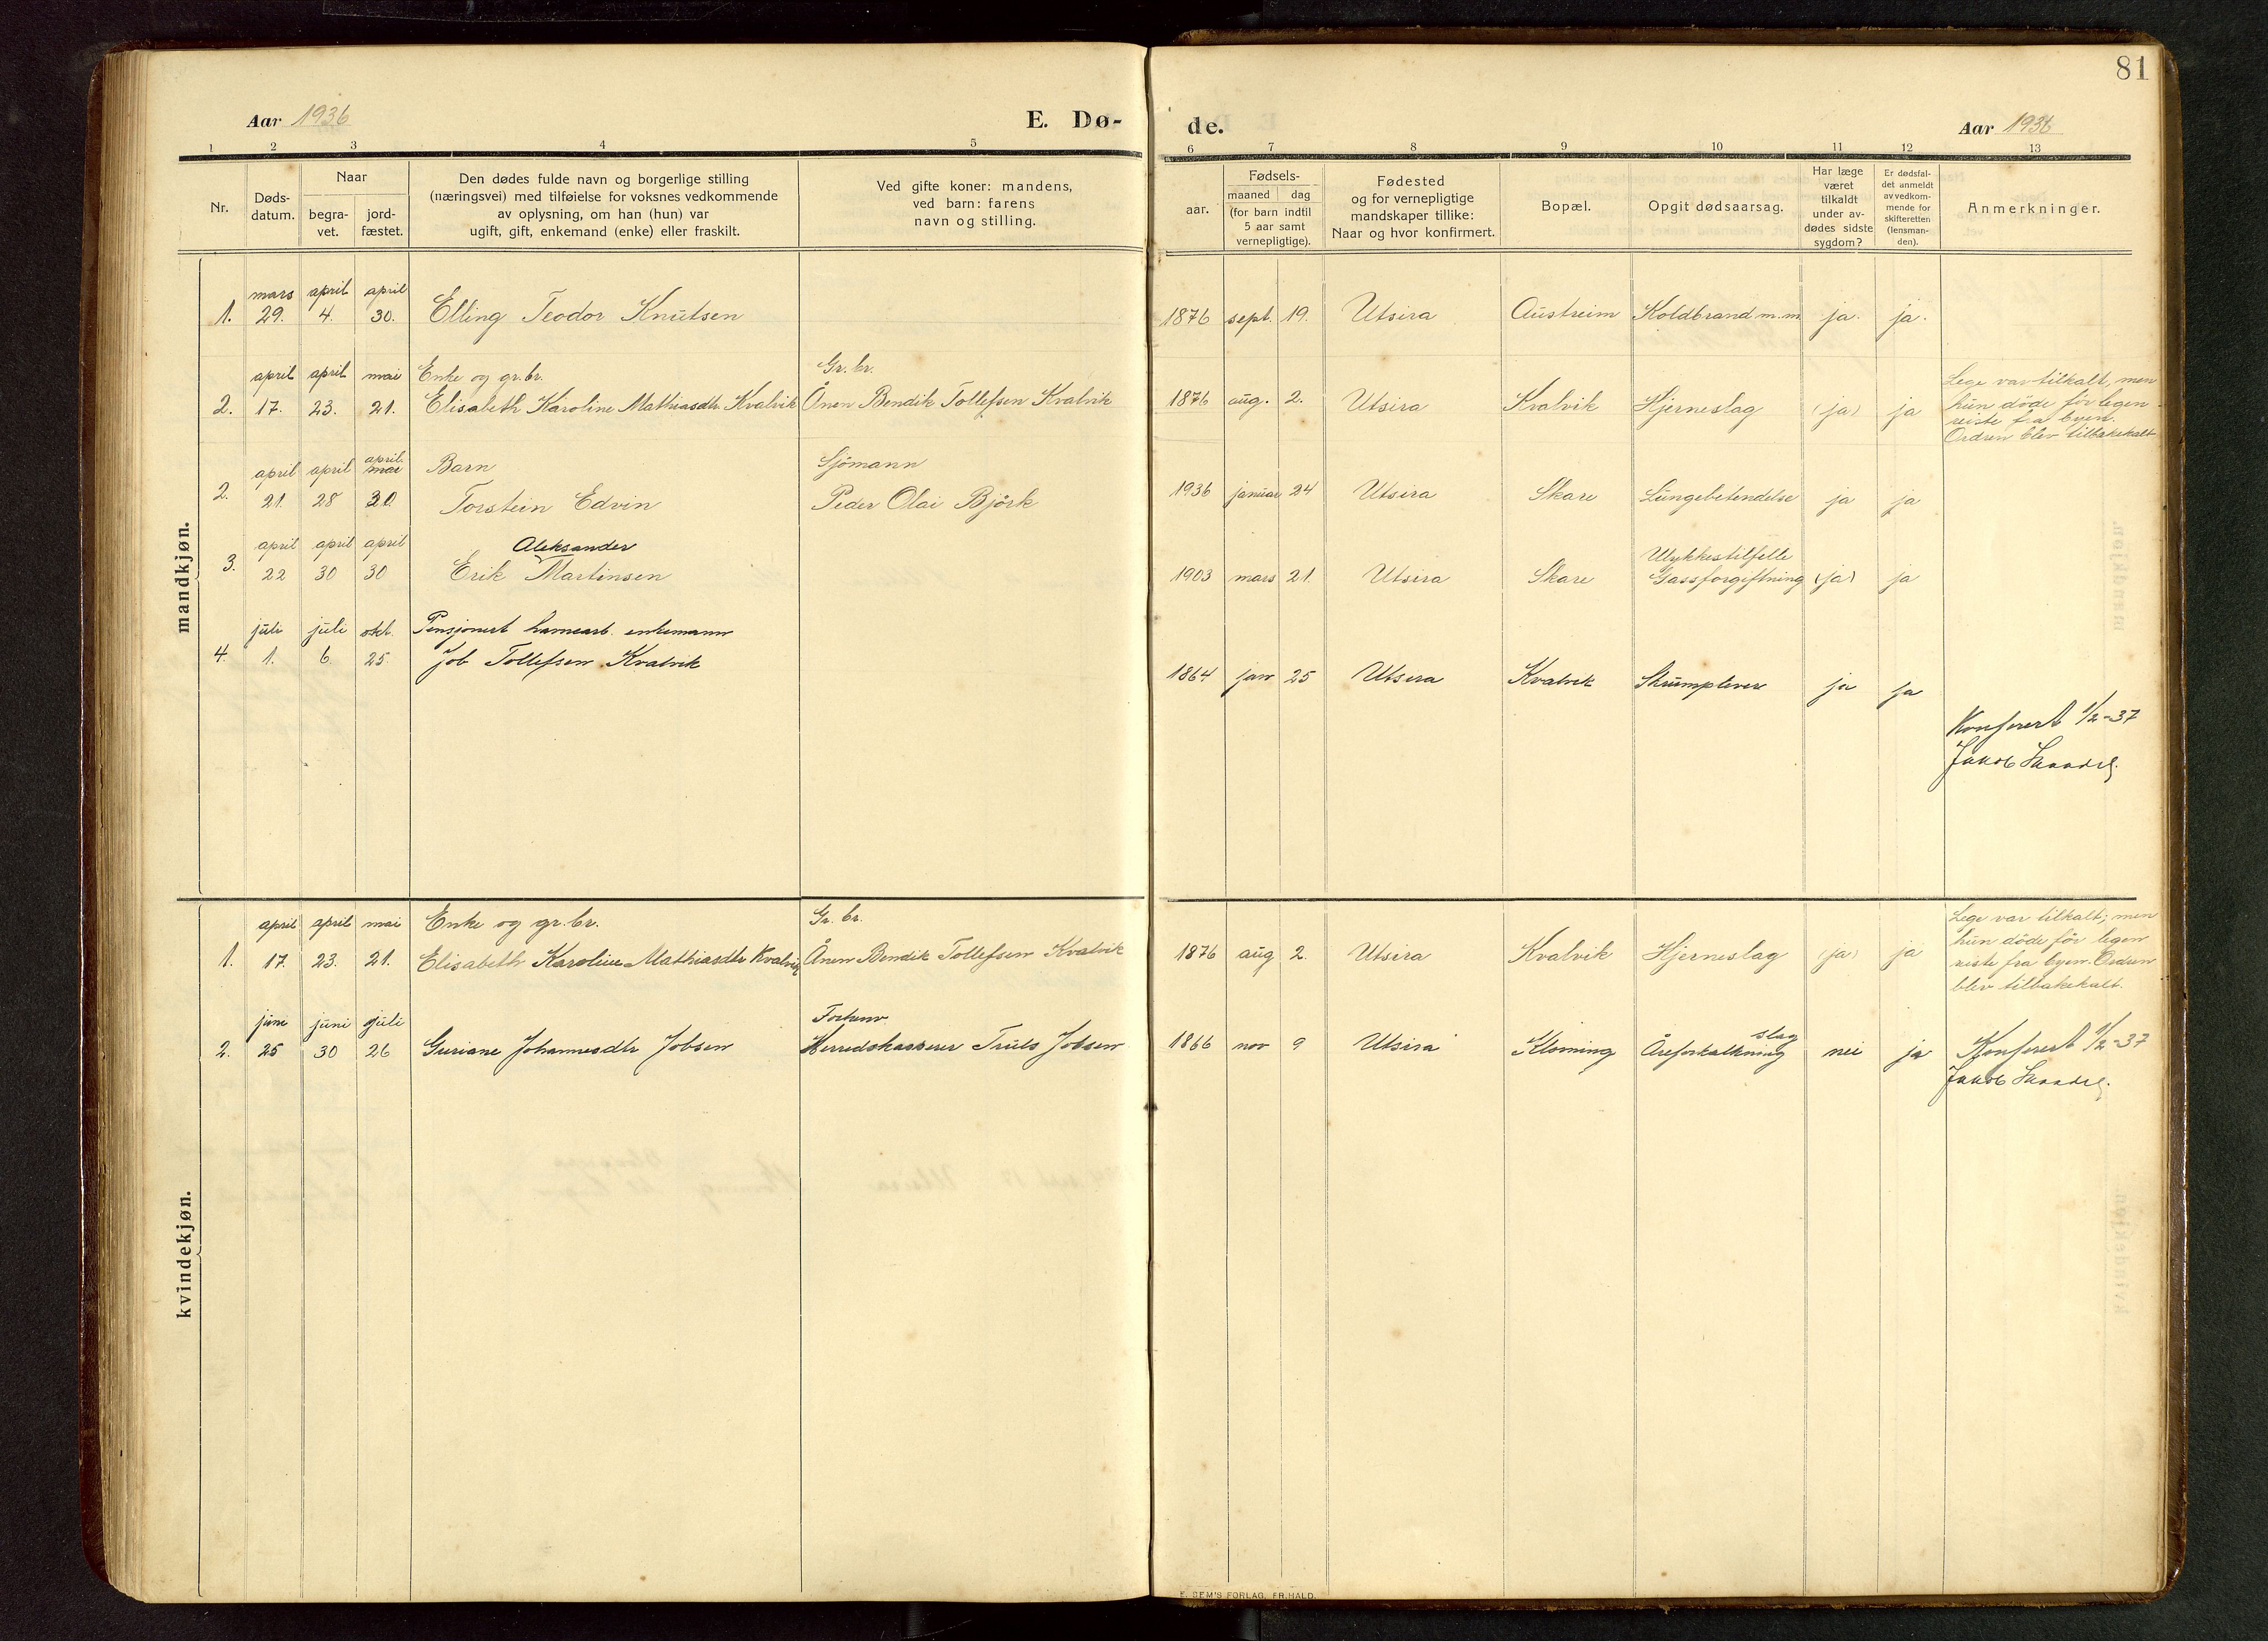 81
Aar 1936
E. Dø-
de.
Aar 1936
1 2 3 4 5 6 7 8 9 10 11 12 13
Nr.
Døds-
datum.
Naar
begra-
vet.
jord-
fæstet.
Den dødes fulde navn og borgerlige stilling
(næringsvei) med tilføielse for voksnes vedkommende
av oplysning, om han (hun) var
ugift, gift, enkemand (enke) eller fraskilt.
Ved gifte koner: mandens,
ved barn: farens
navn og stilling.
aar.
Fødsels-
maaned dag
(for barn indtil
5 aar samt
vernepligtige).
Fødested
og for vernepligtige
mandskaper tillike:
Naar og hvor konfirmert.
Bopæl.
Opgit dødsaarsag.
Har læge
været
tilkaldt
under av-
dødes sidste
sygdom?
Er dødsfal-
det anmeldt
av vedkom-
mende for
skifteretten
(lensman-
den).
Anmerkninger.
mandkjøn.
mars april april
1. 29. 4. 30. Elling Teodor Knutsen 1876 sept. 19. Utsira Austreim Koldbrand m.m. ja. ja.
april april mai Enke og gr.br. Gr. br.
2. 17. 23. 21. Elisabeth Karoline Mathiasdtr. Kvalvik Ånen Bendik Tollefsen Kvalvik 1876 aug. 2. Utsira Kvalvik Hjerneslag (ja) ja
Lege var tilkalt, men
hun döde för legen
reiste fra byen.
Ordren blev tilbakekalt
april.
april april mai Barn Sjömann
2. 21. 28 30 Torstein Edvin Peder Olai Björk 1936 januar 24 Utsira Skare Lungebetendelse ja ja
april april april Aleksander Ulykkestilfelle
3. 22 30 30 Erik Martinsen 1903 mars 21. Utsira Skare Gassforgiftning (ja) ja
juli juli okt. Pensjonert havnearb. enkemann
4. 1. 6. 25. Job Tollefsen Kvalvik 1864 jan 25 Utsira Kvalvik Skrumplever ja ja
Konferert 1/2-37
Jakob
kvindekjøn.
april april mai Enke og gr.br. Gr. br.
1. 17. 23. 21. Elisabeth Karoline Mathiasdtr Kvalvik Ånen Bendik Tollefsen Kvalvik 1876 aug 2. Utsira Kvalvik Hjerneslag (ja) ja
Lege var tilkalt; men
hun döde för legen
reiste fra byen. Ordren
blev tilbakekalt.
juni juni juli Forhenv. slag
2. 25 30 26 Guriane Johannesdtr Jobsen Herredskasserer Truls Jobsen 1866 nov 9 Utsira Kloming Åreforkalkning nei ja
Konferert 1/2-37
Jakob
E. SEM'S FORLAG, FR.HALD.